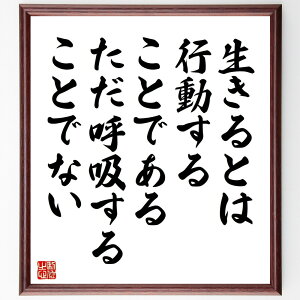 生きるとは
行動する
ことである
ただ呼吸する
ことでない